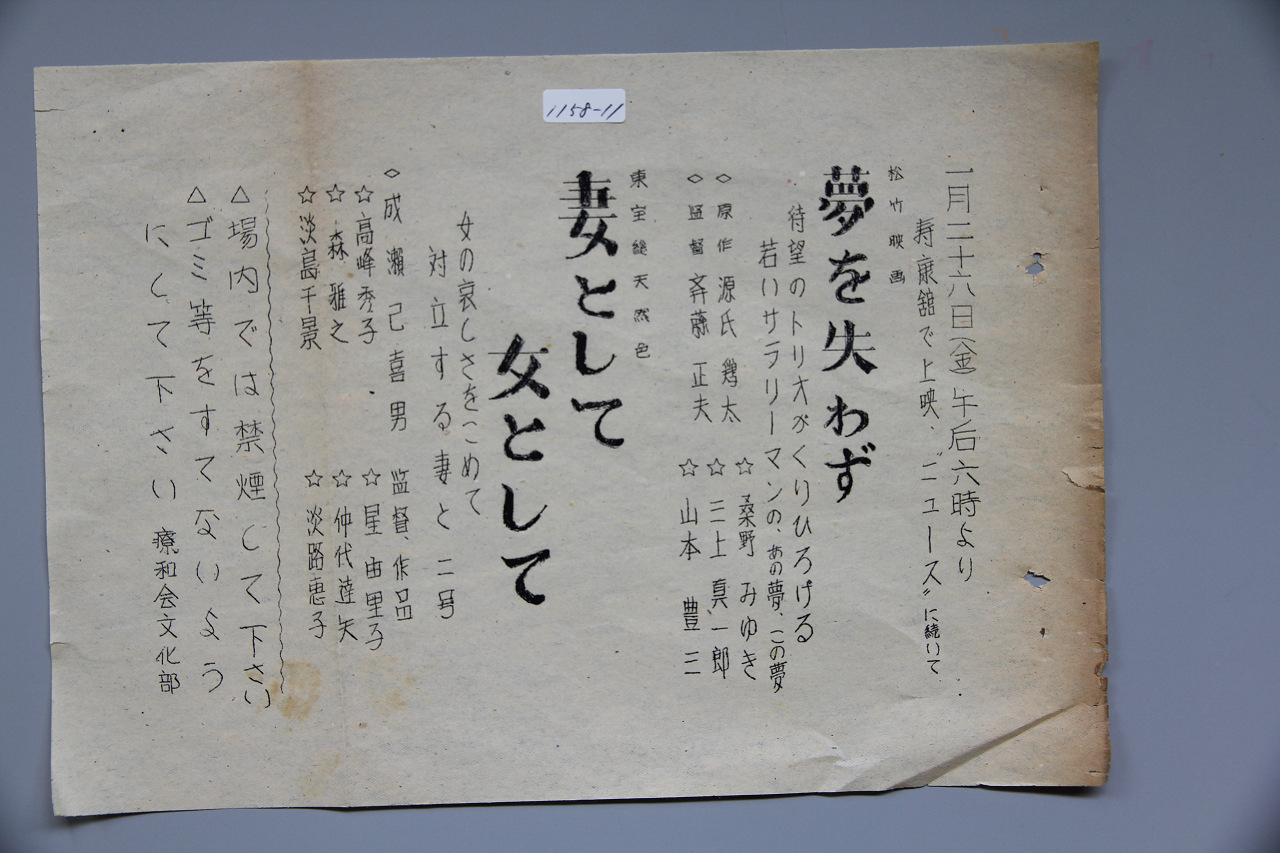 1158-11
一月二十六日(金)午后六時より
寿康舘で上映、〝ニュース〟に続いて
松竹映画
夢を失わず
待望のトリオがくりひろげる
若いサラリーマンの、あの夢、この夢
◇原作 源氏鶏太
◇監督 斉藤正夫
☆桑野みゆき
☆三上真一郎
☆山本豊三
東宝総天然色
妻として
女として
女の哀しさをこめて
対立する妻と二号
◇成瀬己喜男 監督、作品
☆高峰秀子 ☆星由里子
☆森雅之 ☆仲代達矢
☆淡島千景 ☆淡路恵子
△場内では禁煙して下さい
△ゴミ等をすてないよう
にして下さい 療和会文化部